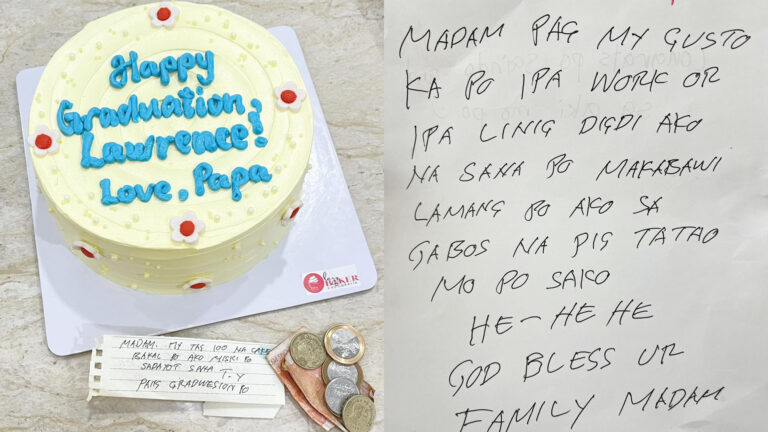 Happy
Graduation,
Lawrence!
Love, Papa
BAKER
MADAM. MY TAG 100 NA CAKE
BAKAL PO AKO MISKI PO
SADAYOT SANA
T.Y
PANG GRADWESION PO
MADAM PAG MY GUSTO
KA PO IPA WORK OR
IPA LINIG DIGDI AKO
NA SANA PO MAKABAWI
LAMANG PO AKO SA
GABOS NA PIG TATAO
MO PO SAKO
HE-HE HE
GOD BLESS UR
FAMILY MADAM